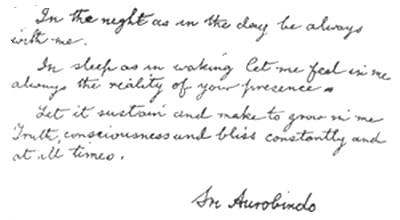 In the night as in the day be always
with me.
In sleep as in waking let me feel in me
always the reality of your presence.
Let it sustain and make to grow in me
Truth, consciousness and bliss constantly and
at all times.
Sri Aurobindo